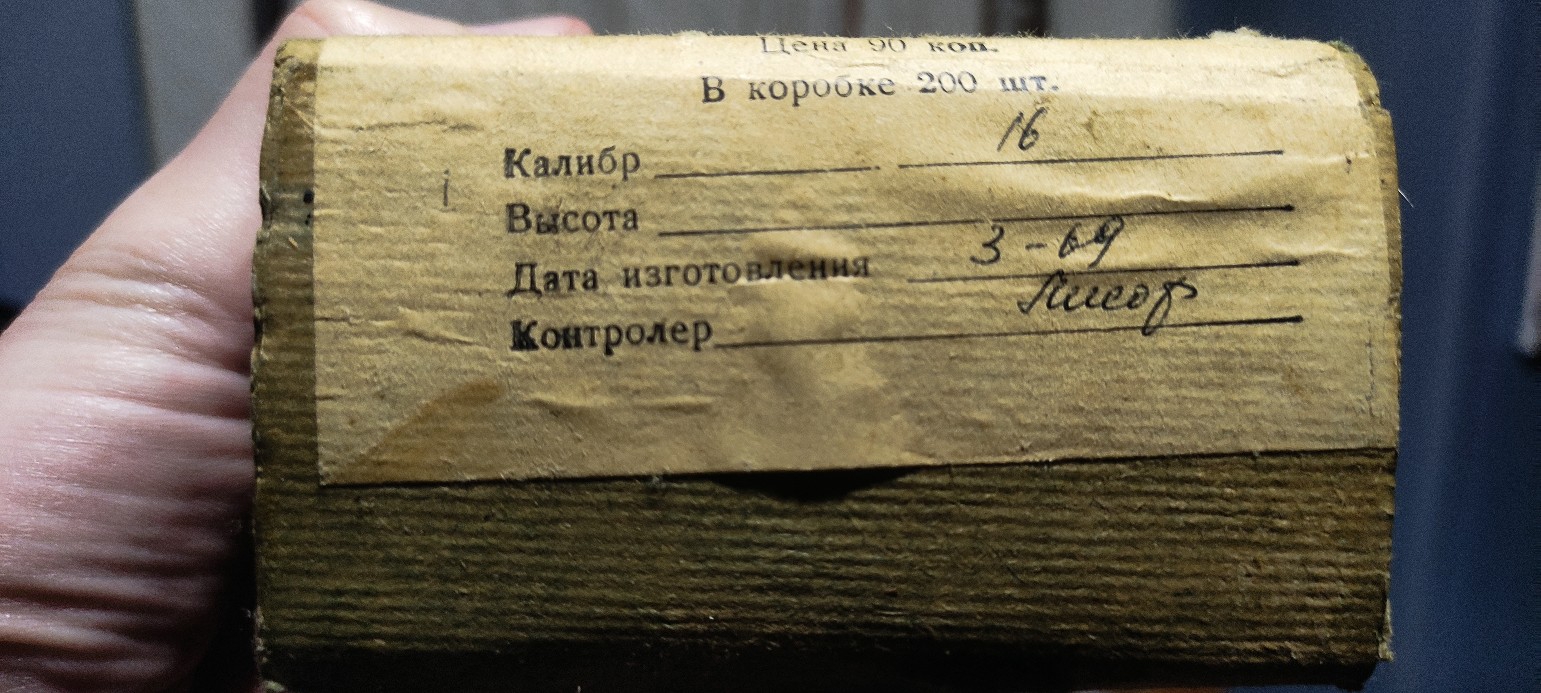 Цена 90 коп.
В коробке 200 шт.
Калибр 16
Высота
Дата изготовления 3-69
Контролер